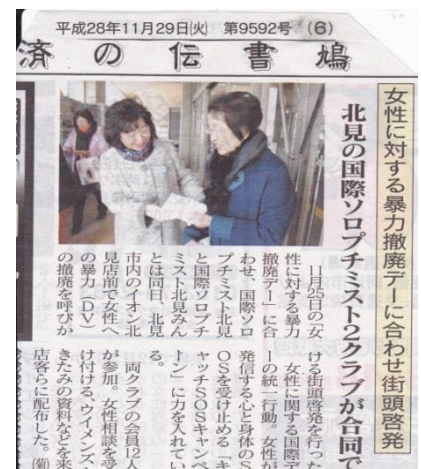 平成28年11月29日㈫ 第9592号 (6)
済の伝書鳩
女性に対する暴力撤廃デーに合わせ街頭啓発
北見の国際ソロプチミスト2クラブが合同で
11月25日の女
性に対する暴力
撤廃デー」に合
わせ、国際ソロ
プチミスト北見
と国際ソロプチ
ミスト北見みん
とは同日、北見
市内のイオン北
見店前で女性へ
の暴力（DV）
の撤廃を呼びか
ける街頭啓発を行っ
女性に関する国際
ーの統一行動。女性が
発信する心と身体のS
OSを受け止める「キ
ャッチSOSキャンペ
ーン」に力を入れてい
る。
両クラブの会員12人
が参加。女性相談を受
け付ける、ウイメンズ
きたみの資料などを来
店客らに配布した。(菊